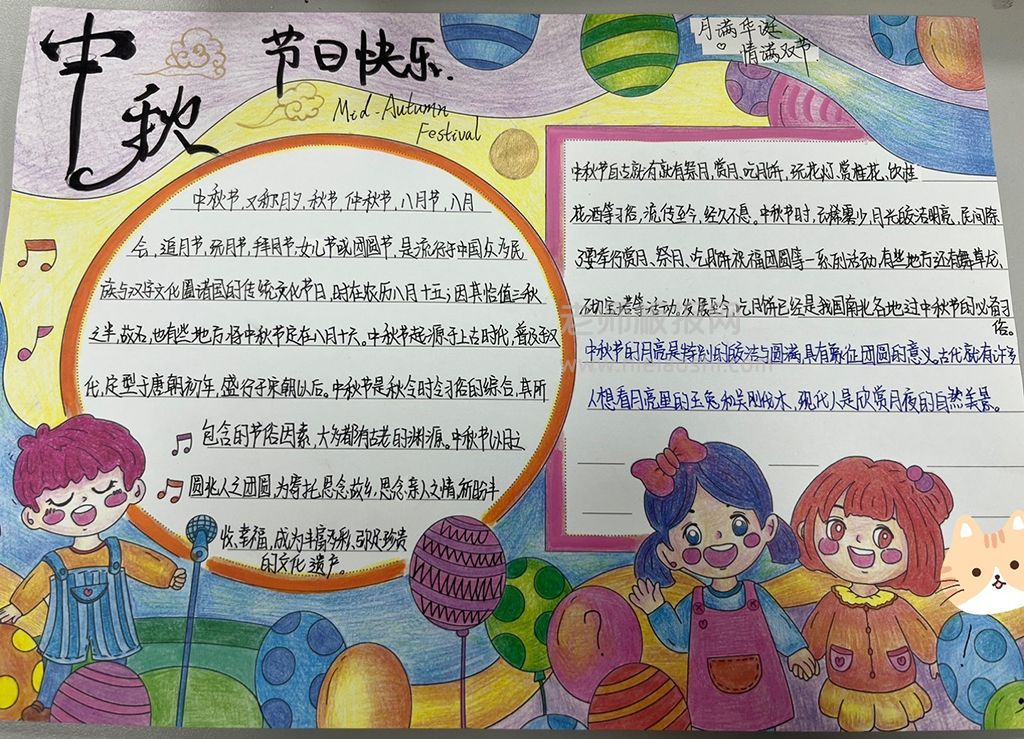 中秋
节日快乐.
Mid-Autumn
Festival
月满华诞
情满双节.
中秋节,又称月夕,秋节,仲秋节,八月节,八月
会,追月节,玩月节,拜月节,女儿节或团圆节,是流行于中国众多民
族与汉字文化圈诸国的传统文化节日,时在农历八月十五;因其恰值三秋
之半,故名,也有些地方将中秋节定在八月十六。中秋节起源于上古时代,普及于汉
代,定型于唐朝初年,盛行于宋朝以后。中秋节是秋令时令习俗的综合,其所
包含的节俗因素,大多都有古老的渊源。中秋节以月之
圆兆人之团圆,为寄托思念故乡,思念亲人之情,祈盼丰
收,幸福,成为丰富多彩,弥足珍贵
的文化遗产。
中秋节自古就有就有祭月,赏月,吃月饼,玩花灯,赏桂花、饮桂
花酒等习俗,流传至今,经久不息。中秋节时,云稀雾少,月光皎洁明亮,民间除
了要举行赏月、祭月、吃月饼祝福团圆等一系列活动,有些地方还有舞草龙,
砌宝塔等活动,发展至今,吃月饼已经是我国南北各地过中秋节的必备习
俗。
中秋节的月亮是特别的皎洁与圆满,具有象征团圆的意义。古代就有许多
人想看月亮里的玉兔和吴刚伐木,现代人是欣赏月夜的自然美景。
老师板报网
www.mielaoshi.com